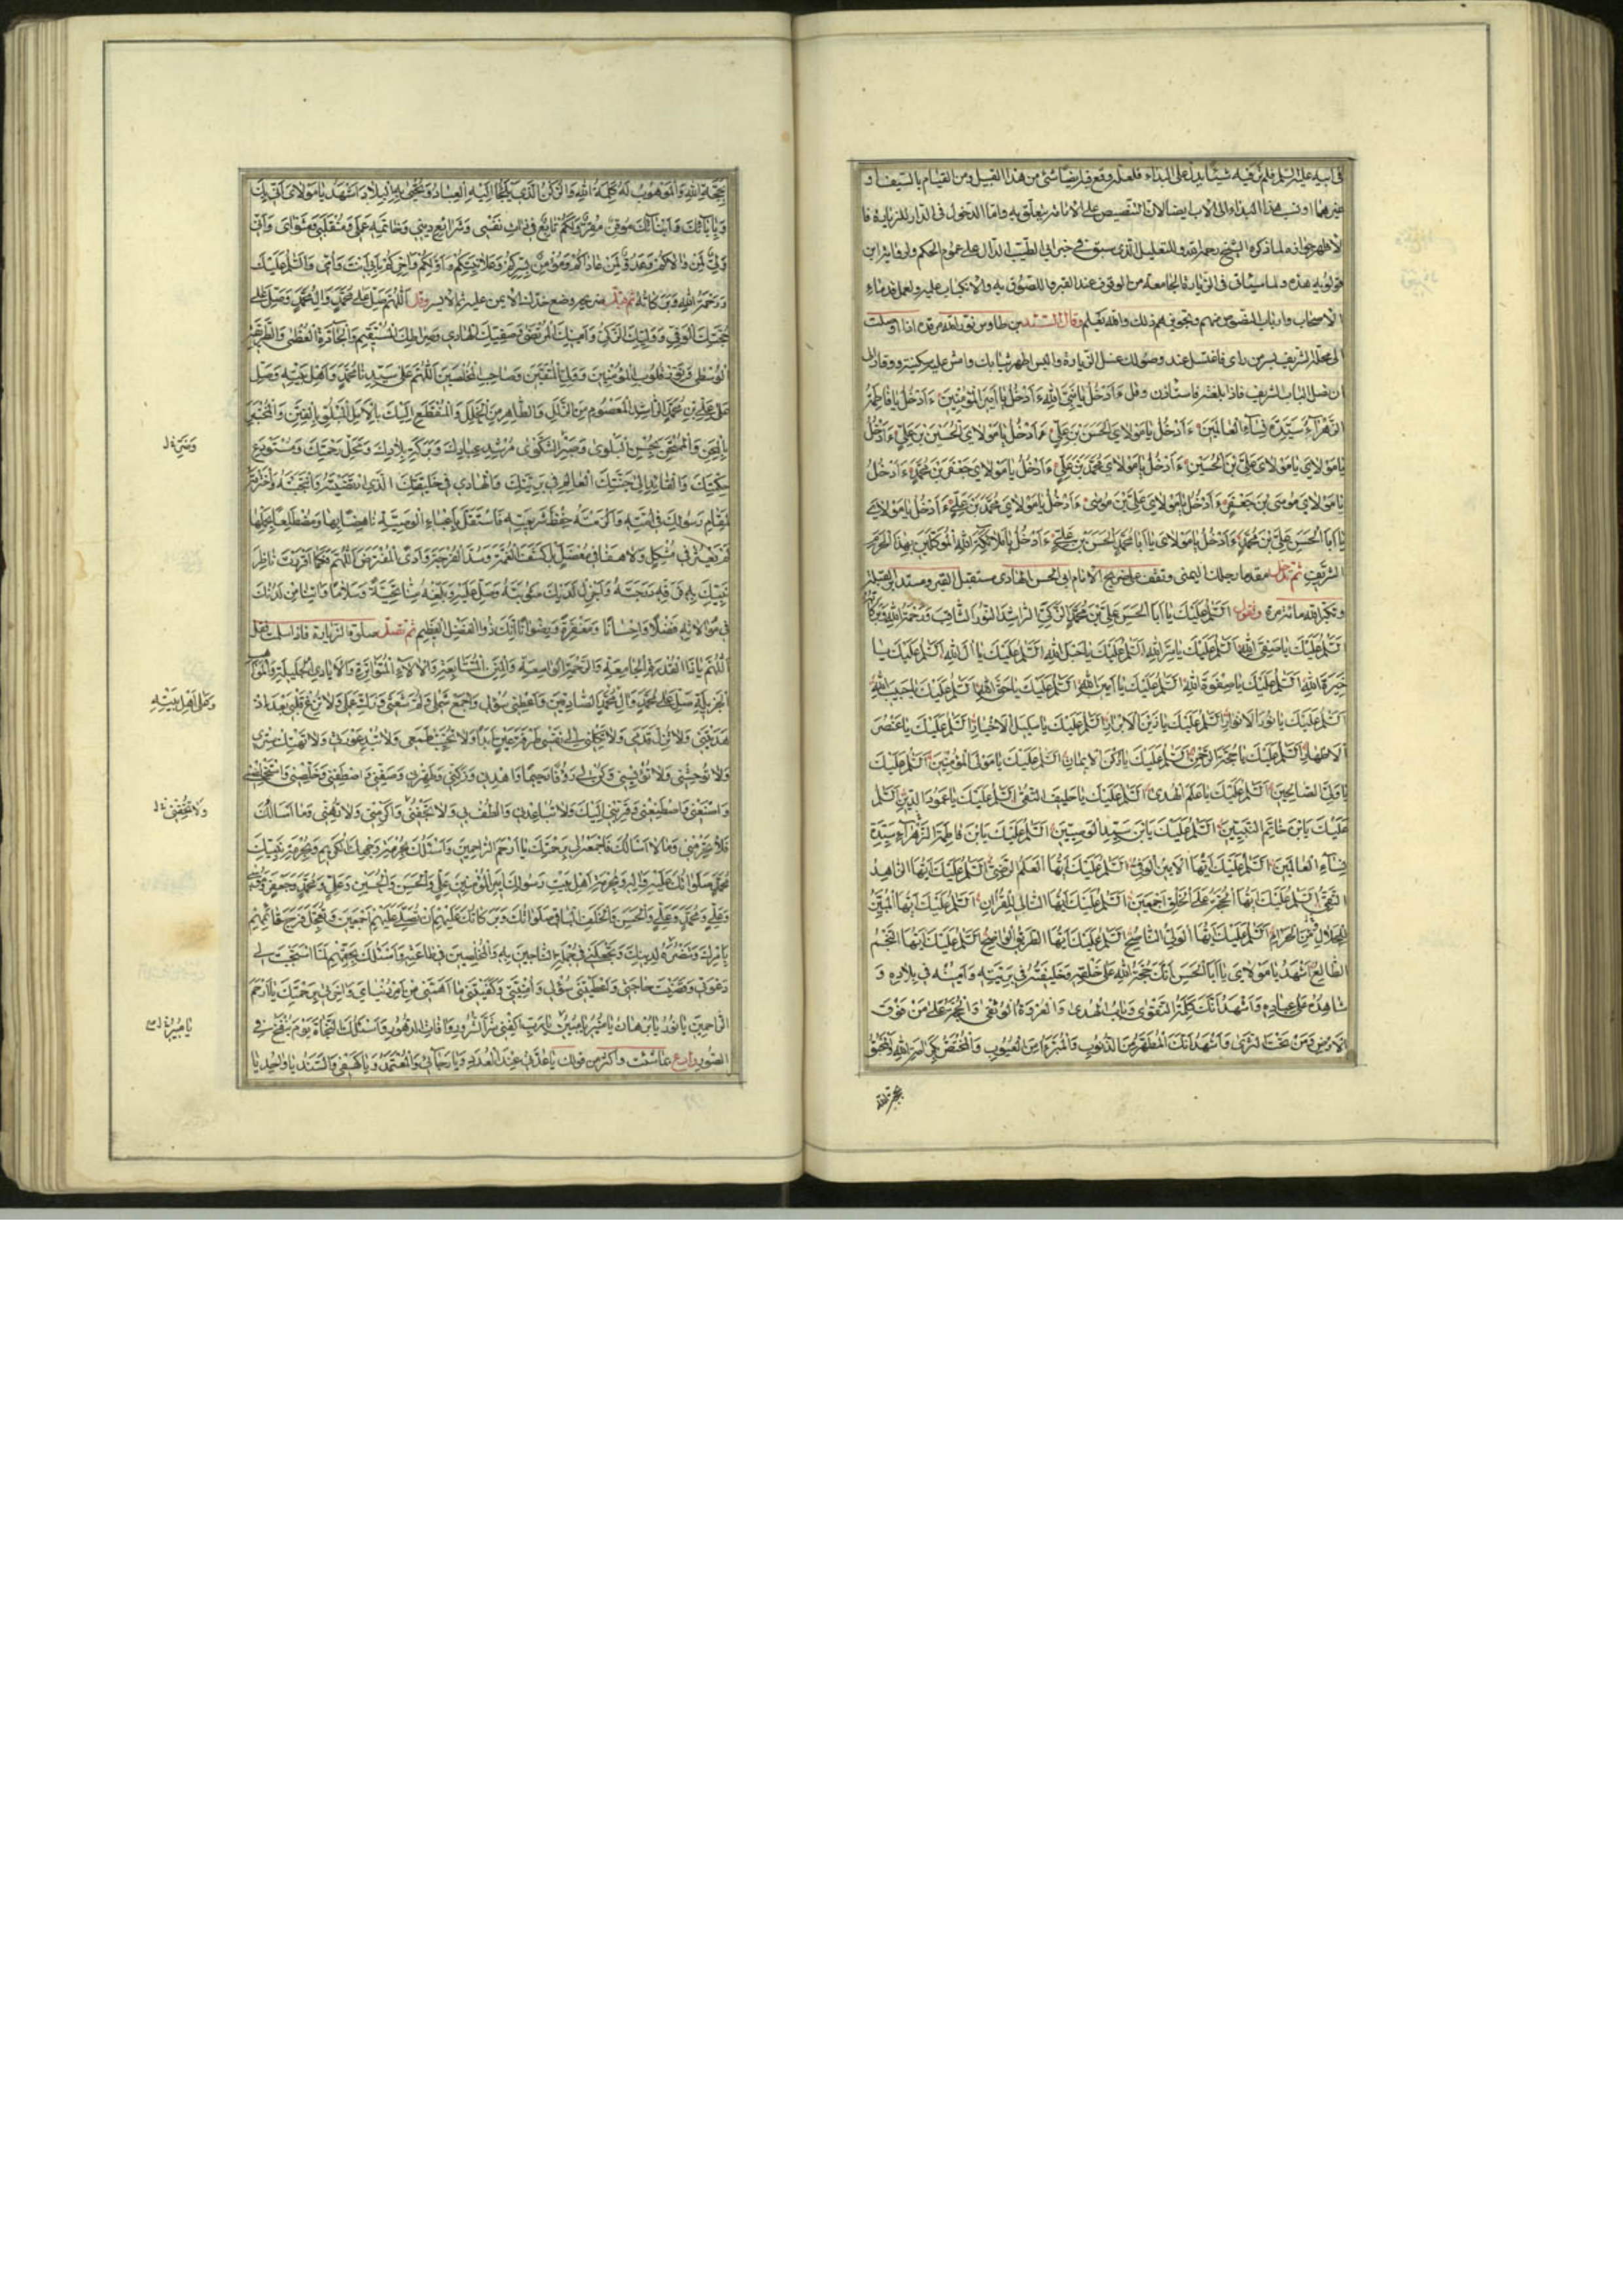 في ابيه عليه السلم فلم نر فيه شيئا يدل على البداء فلعله وقع فيه ايضا شئ من هذا القبيل ومن القيام بالسيف او
غيرهما او نسب هذا البداء الى الاب ايضا لان التنصيص على الامامة يتعلق به واما الدخول في الدار للزيارة فا
لاظهر جوازه لما ذكره الشيخ رحمه الله وللتعليل الذي سبق في خبر ابي الطيب الدال على عموم الحكم ولرواية ابن
قولويه هذه ولما سيأتي في الزيارة الجامعة من الوقوف عند القبر واللصوق به والانكباب عليه ولعمل قدماء
الاصحاب وارباب النصوص منهم وتجويزهم ذلك والله يعلم وقال السيد بن طاوس نور الله مرقده اذا وصلت
الى محله الشريف بسر من راى فاغتسل عند وصولك غسل الزيارة والبس اطهر ثيابك وامش على سكينة ووقار الى
ان تصل الباب الشريف فاذا بلغته فاستأذن وقل ءَاَدْخُلُ يا نَبِيَّ اللهِ ءَاَدْخُلُ يا اَميرَ الْمُؤْمِنينَ ءَاَدْخُلُ يا فاطِمَةُ
الزَّهْراءُ سَيِّدَةَ نِساءِ الْعالَمينَ ءَاَدْخُلُ يا مَوْلايَ الْحَسَنَ بْنَ عَلِيٍّ ءَاَدْخُلُ يا مَوْلايَ الْحُسَيْنَ بْنَ عَلِيٍّ ءَاَدْخُلُ
يا مَوْلايَ يا مَوْلايَ عَلِيَّ بْنَ الْحُسَيْنِ ءَاَدْخُلُ يا مَوْلايَ مُحَمَّدَ بْنَ عَلِيٍّ ءَاَدْخُلُ يا مَوْلايَ جَعْفَرَ بْنَ مُحَمَّدٍ ءَاَدْخُلُ
يا مَوْلايَ مُوسَى بْنَ جَعْفَرٍ ءَاَدْخُلُ يا مَوْلايَ عَلِيَّ بْنَ مُوسى ءَاَدْخُلُ يا مَوْلايَ مُحَمَّدَ بْنَ عَلِيٍّ ءَاَدْخُلُ يا مَوْلايَ
يا اَبَا الْحَسَنِ عَلِيَّ بْنَ مُحَمَّدٍ ءَاَدْخُلُ يا مَوْلايَ يا اَبا مُحَمَّدٍ الْحَسَنَ بْنَ عَلِيٍّ ءَاَدْخُلُ يا مَلائِكَةَ اللهِ الْمُوَكَّلينَ بِهذَا الْحَرَمِ
الشَّريفِ ثم تدخل مقدما رجلك اليمنى وتقف على ضريح الامام ابي الحسن الهادي مستقبل القبر ومستدبر القبلة
وتكبر الله مائة مرة وتقول اَلسَّلمُ عَلَيْكَ يا اَبَا الْحَسَنِ عَلِيَّ بْنَ مُحَمَّدٍ الزَّكِيَّ الرّاشِدَ النُّورَ الثّاقِبَ وَرَحْمَةُ اللهِ وَبَرَكاتُهُ
اَلسَّلمُ عَلَيْكَ يا صَفِيَّ اللهِ اَلسَّلمُ عَلَيْكَ يا سِرَّ اللهِ اَلسَّلمُ عَلَيْكَ يا حَبْلَ اللهِ اَلسَّلمُ عَلَيْكَ يا الَ اللهِ اَلسَّلمُ عَلَيْكَ يا
خِيَرَةَ اللهِ اَلسَّلمُ عَلَيْكَ يا صَفْوَةَ اللهِ اَلسَّلمُ عَلَيْكَ يا اَمينَ اللهِ اَلسَّلمُ عَلَيْكَ يا حَقَّ اللهِ اَلسَّلمُ عَلَيْكَ يا حَبيبَ اللهِ
اَلسَّلمُ عَلَيْكَ يا نُورَ الْاَنْوارِ اَلسَّلمُ عَلَيْكَ يا زَيْنَ الْاَبْرارِ اَلسَّلمُ عَلَيْكَ يا سَليلَ الْاَخْيارِ اَلسَّلمُ عَلَيْكَ يا عُنْصُرَ
الْاَطْهارِ اَلسَّلمُ عَلَيْكَ يا حُجَّةَ الرَّحْمنِ اَلسَّلمُ عَلَيْكَ يا رُكْنَ الْايمانِ اَلسَّلمُ عَلَيْكَ يا مَوْلَى الْمُؤْمِنينَ اَلسَّلمُ عَلَيْكَ
يا وَلِيَّ الصّالِحينَ اَلسَّلمُ عَلَيْكَ يا عَلَمَ الْهُدى اَلسَّلمُ عَلَيْكَ يا حَليفَ التُّقى اَلسَّلمُ عَلَيْكَ يا عَمُودَ الدّينِ اَلسَّلمُ
عَلَيْكَ يَا بْنَ خاتَمِ النَّبِيّينَ اَلسَّلمُ عَلَيْكَ يَا بْنَ سَيِّدِ الْوَصِيّينَ اَلسَّلمُ عَلَيْكَ يَا بْنَ فاطِمَةَ الزَّهْراءِ سَيِّدَةِ
نِساءِ الْعالَمينَ اَلسَّلمُ عَلَيْكَ اَيُّهَا الْاَمينُ الْوَفِيُّ اَلسَّلمُ عَلَيْكَ اَيُّهَا الْعَلَمُ الرَّضِيُّ اَلسَّلمُ عَلَيْكَ اَيُّهَا الزّاهِدُ
التَّقِيُّ اَلسَّلمُ عَلَيْكَ اَيُّهَا الْحُجَّةُ عَلَى الْخَلْقِ اَجْمَعينَ اَلسَّلمُ عَلَيْكَ اَيُّهَا التّالي لِلْقُرْانِ اَلسَّلمُ عَلَيْكَ اَيُّهَا الْمُبَيِّنُ
لِلْحَلالِ مِنَ الْحَرامِ اَلسَّلمُ عَلَيْكَ اَيُّهَا الْوَلِيُّ النّاصِحُ اَلسَّلمُ عَلَيْكَ اَيُّهَا الطَّريقُ الْواضِحُ اَلسَّلمُ عَلَيْكَ اَيُّهَا النَّجْمُ
الطّالِعُ اَشْهَدُ يا مَوْلايَ يا اَبَا الْحَسَنِ اَنَّكَ حُجَّةُ اللهِ عَلى خَلْقِهِ وَخَليفَتُهُ في بَرِيَّتِهِ وَاَمينُهُ في بِلادِهِ وَ
شاهِدُهُ عَلى عِبادِهِ وَاَشْهَدُ اَنَّكَ كَلِمَةُ التَّقْوى وَبابُ الْهُدى وَالْعُرْوَةُ الْوُثْقى وَالْحُجَّةُ عَلى مَنْ فَوْقَ
الْاَرْضِ وَمَنْ تَحْتَ الثَّرى وَاَشْهَدُ اَنَّكَ الْمُطَهَّرُ مِنَ الذُّنُوبِ وَالْمُبَرَّءُ مِنَ الْعُيُوبِ وَالْمُخْتَصُّ بِكَرامَةِ اللهِ وَالْمَحْبُوُّ
بحجة الله
بِحُجَّةِ اللهِ وَالْمَوْهُوبُ لَهُ كَلِمَةُ اللهِ وَالرُّكْنُ الَّذي يَلْجَأُ اِلَيْهِ الْعِبادُ وَتُحْيى بِهِ الْبِلادُ اَشْهَدُ يا مَوْلايَ اَنّي بِكَ
وَبِابائِكَ وَاَبْنائِكَ مُوقِنٌ مُقِرٌّ وَلَكُمْ تابِعٌ في ذاتِ نَفْسي وَشَرائِعِ ديني وَخاتِمَةِ عَمَلي وَمُنْقَلَبي وَمَثْوايَ وَاَنّي
وَلِيٌّ لِمَنْ والاكُمْ وَعَدُوٌّ لِمَنْ عاداكُمْ وَمُؤْمِنٌ بِسِرِّكُمْ وَعَلانِيَتِكُمْ وَاَوَّلِكُمْ وَاخِرِكُمْ بِاَبي اَنْتَ وَاُمّي وَالسَّلمُ عَلَيْكَ
وَرَحْمَةُ اللهِ وَبَرَكاتُهُ ثم قبل ضريحه وضع خدك الايمن عليه ثم الايسر وقل اَللّهُمَّ صَلِّ عَلى مُحَمَّدٍ وَالِ مُحَمَّدٍ وَصَلِّ عَلى
حُجَّتِكَ الْوَفِيِّ وَوَلِيِّكَ الزَّكِيِّ وَاَمينِكَ الْمُرْتَضى وَصَفِيِّكَ الْهادي وَصِراطِكَ الْمُسْتَقيمِ وَالْجادَّةِ الْعُظْمى وَالطَّريقَةِ
الْوُسْطى وَنُورِ قُلُوبِ الْمُؤْمِنينَ وَوَلِيِّ الْمُتَّقينَ وَصاحِبِ الْمُخْلَصينَ اَللّهُمَّ صَلِّ عَلى سَيِّدِنا مُحَمَّدٍ وَاَهْلِ بَيْتِهِ وَصَلِّ
عَلى عَلِيِّ بْنِ مُحَمَّدٍ الرّاشِدِ الْمَعْصُومِ مِنَ الزَّلَلِ وَالطّاهِرِ مِنَ الْخَلَلِ وَالْمُنْقَطِعِ اِلَيْكَ بِالْاَمَلِ الْمَبْلُوِّ بِالْفِتَنِ وَالْمُخْتَبَرِ
بِالْمِحَنِ وَالْمُمْتَحَنِ بِحُسْنِ الْبَلْوى وَصَبْرِ الشَّكْوى مُرْشِدِ عِبادِكَ وَبَرَكَةِ بِلادِكَ وَمَحَلِّ رَحْمَتِكَ وَمُسْتَوْدَعِ
حِكْمَتِكَ وَالْقائِدِ اِلى جَنَّتِكَ الْعالِمِ في بَرِيَّتِكَ وَالْهادي في خَليقَتِكَ الَّذي ارْتَضَيْتَهُ وَانْتَجَبْتَهُ وَاخْتَرْتَهُ
لِمَقامِ رَسُولِكَ في اُمَّتِهِ وَاَلْزَمْتَهُ حِفْظَ شَريعَتِهِ فَاسْتَقَلَّ بِاَعْباءِ الْوَصِيَّةِ ناهِضًا بِها وَمُضْطَلِعًا بِحَمْلِها
لَمْ يَعْثُرْ في مُشْكِلٍ وَلا هَفا في مُعْضِلٍ بَلْ كَشَفَ الْغُمَّةَ وَسَدَّ الْفُرْجَةَ وَاَدَّى الْمُفْتَرَضَ اَللّهُمَّ فَكَما اَقْرَرْتَ ناظِرَ
نَبِيِّكَ بِهِ فَرَقِّهِ دَرَجَتَهُ وَاَجْزِلْ لَدَيْكَ مَثُوبَتَهُ وَصَلِّ عَلَيْهِ وَبَلِّغْهُ مِنّا تَحِيَّةً وَسَلامًا وَاتِنا مِنْ لَدُنْكَ
في مُوالاتِهِ فَضْلًا وَاِحْسانًا وَمَغْفِرَةً وَرِضْوانًا اِنَّكَ ذُو الْفَضْلِ الْعَظيمِ ثم تصلي صلوة الزيارة فاذا سلمت فقل
اَللّهُمَّ يا ذَا الْقُدْرَةِ الْجامِعَةِ وَالرَّحْمَةِ الْواسِعَةِ وَالْمِنَنِ الْمُتَتابِعَةِ وَالْالاءِ الْمُتَواتِرَةِ وَالْاَيادِي الْجَليلَةِ وَالْمَواهِبِ
الْجَزيلَةِ صَلِّ عَلى مُحَمَّدٍ وَالِ مُحَمَّدٍ الصّادِقينَ وَاَعْطِني سُؤْلي وَاجْمَعْ شَمْلي وَلُمَّ شَعَثي وَزَكِّ عَمَلي وَلا تُزِغْ قَلْبي بَعْدَ اِذْ
هَدَيْتَني وَلا تُزِلَّ قَدَمي وَلا تَكِلْني اِلى نَفْسي طَرْفَةَ عَيْنٍ اَبَدًا وَلا تُخَيِّبْ طَمَعي وَلا تُبْدِ عَوْرَتي وَلا تَهْتِكْ سِتْري
وَلا تُوحِشْني وَلا تُؤْيِسْني وَكُنْ لي رَؤُفًا رَحيمًا وَاهْدِني وَزَكِّني وَطَهِّرْني وَصَفِّني وَاصْطَفِني وَخَلِّصْني وَاسْتَخْلِصْني
وَاصْنَعْني وَاصْطَنِعْني وَقَرِّبْني اِلَيْكَ وَلا تُباعِدْني وَالْطُفْ بي وَلا تَجْفُني وَاَكْرِمْني وَلا تُهِنّي وَما اَسْاَلُكَ
فَلا تَحْرِمْني وَما لا اَسْاَلُكَ فَاجْمَعْهُ لي بِرَحْمَتِكَ يا اَرْحَمَ الرّاحِمينَ وَاَسْئَلُكَ بِحُرْمَةِ وَجْهِكَ الْكَريمِ وَبِحُرْمَةِ نَبِيِّكَ
مُحَمَّدٍ صَلَواتُكَ عَلَيْهِ وَالِهِ وَبِحُرْمَةِ اَهْلِ بَيْتِ رَسُولِكَ اَميرِ الْمُؤْمِنينَ عَلِيٍّ وَالْحَسَنِ وَالْحُسَيْنِ وَعَلِيٍّ وَمُحَمَّدٍ وَجَعْفَرٍ وَمُوسى
وَعَلِيٍّ وَمُحَمَّدٍ وَعَلِيٍّ وَالْحَسَنِ وَالْخَلَفِ الْباقي صَلَواتُكَ وَبَرَكاتُكَ عَلَيْهِمْ اَنْ تُصَلِّيَ عَلَيْهِمْ اَجْمَعينَ وَتُعَجِّلَ فَرَجَ قائِمِهِمْ
بِاَمْرِكَ وَتَنْصُرَهُ لِدينِكَ وَتَجْعَلَني في جُمْلَةِ النّاجينَ بِهِ وَالْمُخْلِصينَ في طاعَتِهِ وَاَسْئَلُكَ بِحَقِّهِمْ لَمَّا اسْتَجَبْتَ لي
دَعْوَتي وَقَضَيْتَ حاجَتي وَاَعْطَيْتَني سُؤْلي وَاُمْنِيَّتي وَكَفَيْتَني ما اَهَمَّني مِنْ اَمْرِ دُنْيايَ وَاخِرَتي بِرَحْمَتِكَ يا اَرْحَمَ
الرّاحِمينَ يا نُورُ يا بُرْهانُ يا مُنيرُ يا مُبينُ يا رَبِّ اكْفِني شَرَّ الشُّرُورِ وَافاتِ الدُّهُورِ وَاَسْئَلُكَ النَّجاةَ يَوْمَ يُنْفَخُ فِي
الصُّورِ وادع بما شئت واكثر من قولك يا عُدَّتي عِنْدَ الْعُدَدِ وَيا رَجائي وَالْمُعْتَمَدَ وَيا كَهْفي وَالسَّنَدَ يا واحِدُ يا
وَعَلى اَهْلِ بَيْتِهِ